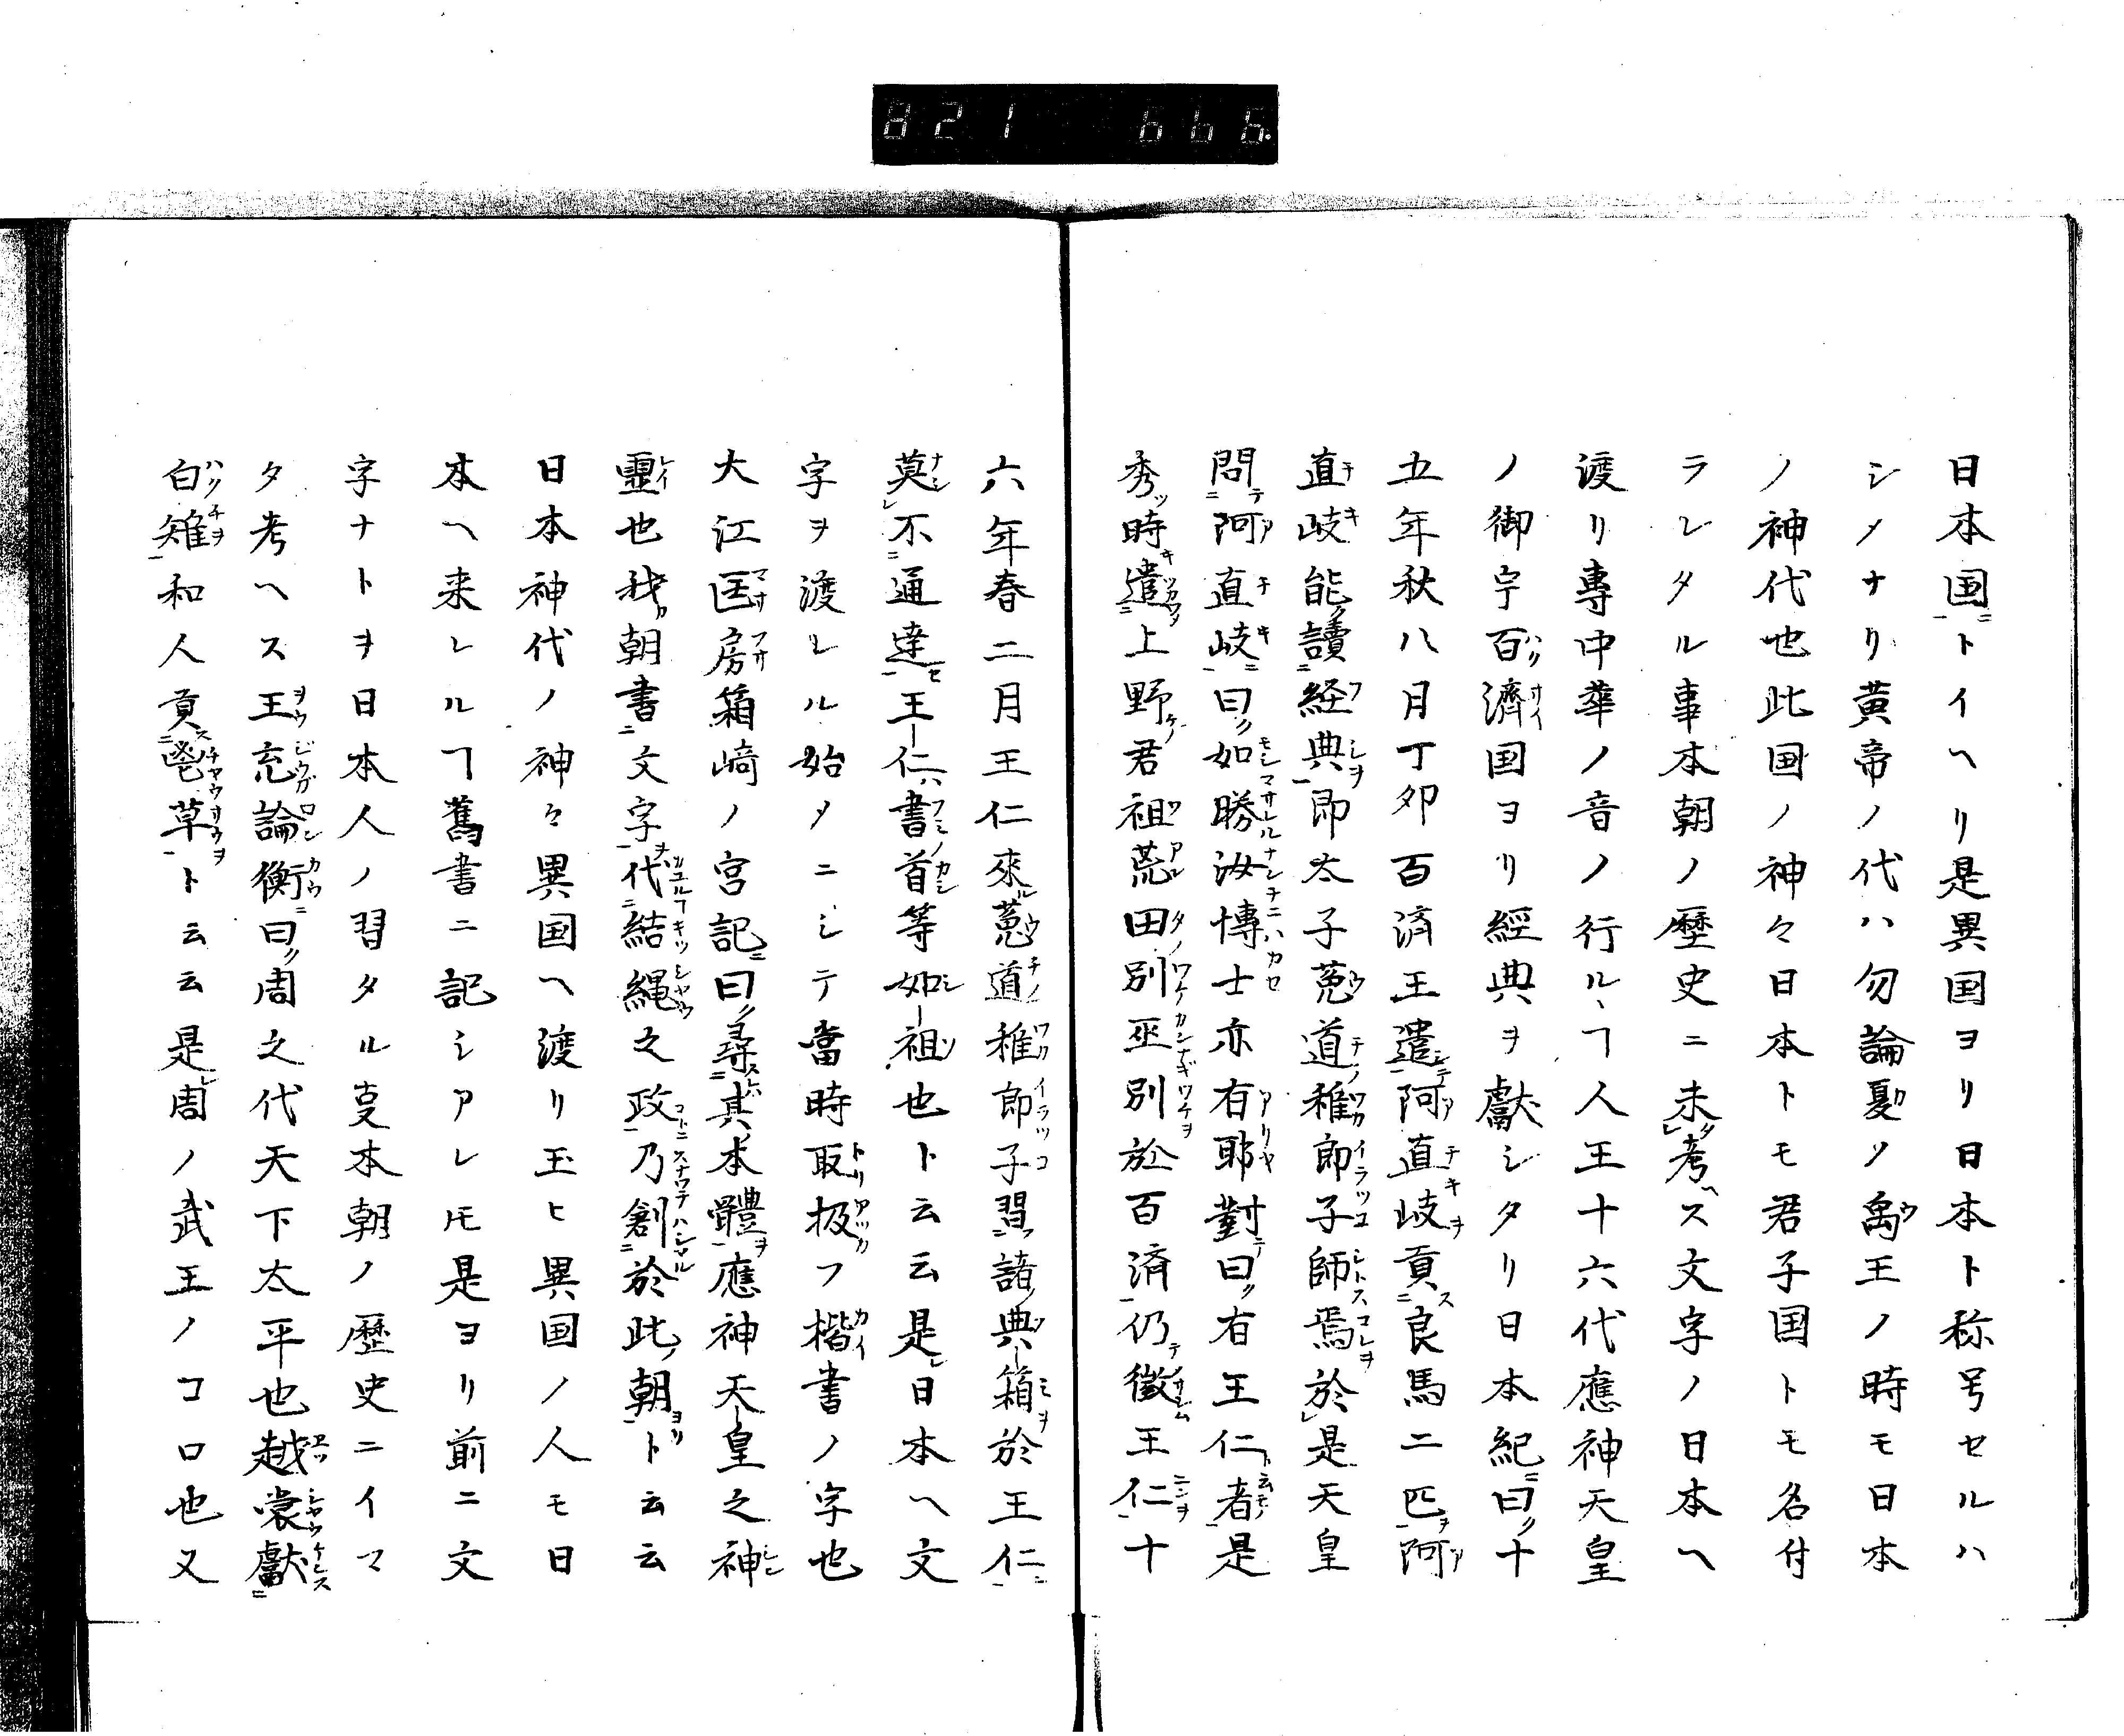 821 666
日本国トイヘリ是異国ヨリ日本ト称号セルハ
シメナリ黄帝ノ代ハ勿論夏ノ禹王ノ時モ日本
ノ神代也此国ノ神々日本トモ君子国トモ名付
ラレタル事本朝ノ歴史ニ未考ヘス文字ノ日本ヘ
渡リ專中華ノ音ノ行ルヽヿ人王十六代應神天皇
ノ御宇百濟国ヨリ經典ヲ獻シタリ日本紀曰十
五年秋八月丁夘百済王遣阿直岐貢良馬二匹阿
直岐能讀経典即太子菟道稚郎子師焉於是天皇
問阿直岐曰如勝汝博士亦有耶對曰有王仁者是
秀時遣上野君祖荒田別巫別於百済仍徴王仁十
六年春二月王仁來菟道稚郎子習諸典籍於王仁
莫不通達王仁書首等始祖也ト云云是日本ヘ文
字ヲ渡レル始メニシテ當時取扱フ楷書ノ字也
大江匡房箱崎ノ宮記曰尋其本體應神天皇之神
靈也我朝書文字代結縄之政乃創於此朝ト云云
日本神代ノ神々異国ヘ渡リ玉ヒ異国ノ人モ日
本ヘ来レルヿ舊書ニ記シアレモ是ヨリ前ニ文
字ナトヲ日本人ノ習タル亊本朝ノ歴史ニイマ
タ考ヘス王充論衡曰周之代天下太平也越裳獻
白雉和人貢鬯草ト云云是周ノ武王ノコロ也又